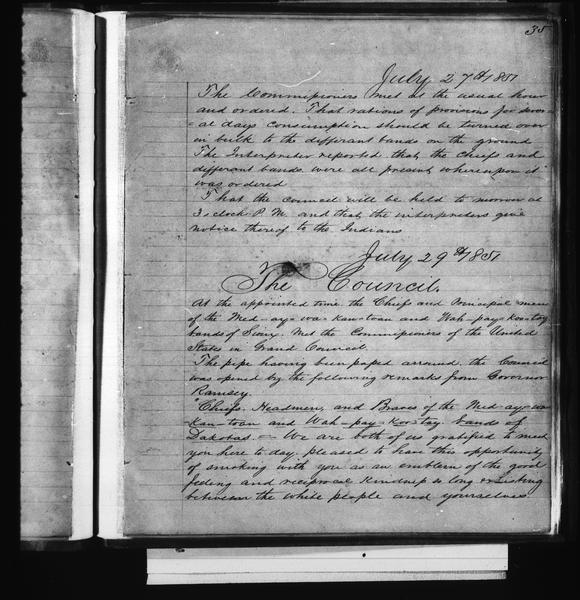 35
July 27th 1851
The Commissioners met at the usual hour
and ordered. That rations of provisions for sever
= al days consumption should be turned over
in bulk to the differant bands on the ground
The Interpreter reported that, the Chiefs and
different bands were all present, whereupon it
was ordered
That the council will be held to morrow at
3 o clock P. M. and that, the interpreters give
notice thereof to the Indians
July 29th 1851
The Council,
At the appointed time the Chiefs and Principal men
of the Med-ay-wa-kan-toan and Wah-pay-koo-tay
bands of Sioux. Met the Commissioners of the United
States in Grand Council.
The pipe having been passed arround, the Council
was opened by the following remarks from Governor
Ramsey.
"Chiefs, Headmen, and Braves of the Med-ay-wa
kan-toan and Wah-pay-koo-tay bands of
Dakotas. = We are both of us gratified to meet
you here to day, pleased to have this opportunity
of smoking with you as an emblem of the good
feeling and reciprocal kindness so long existing
between the white people and yourselves